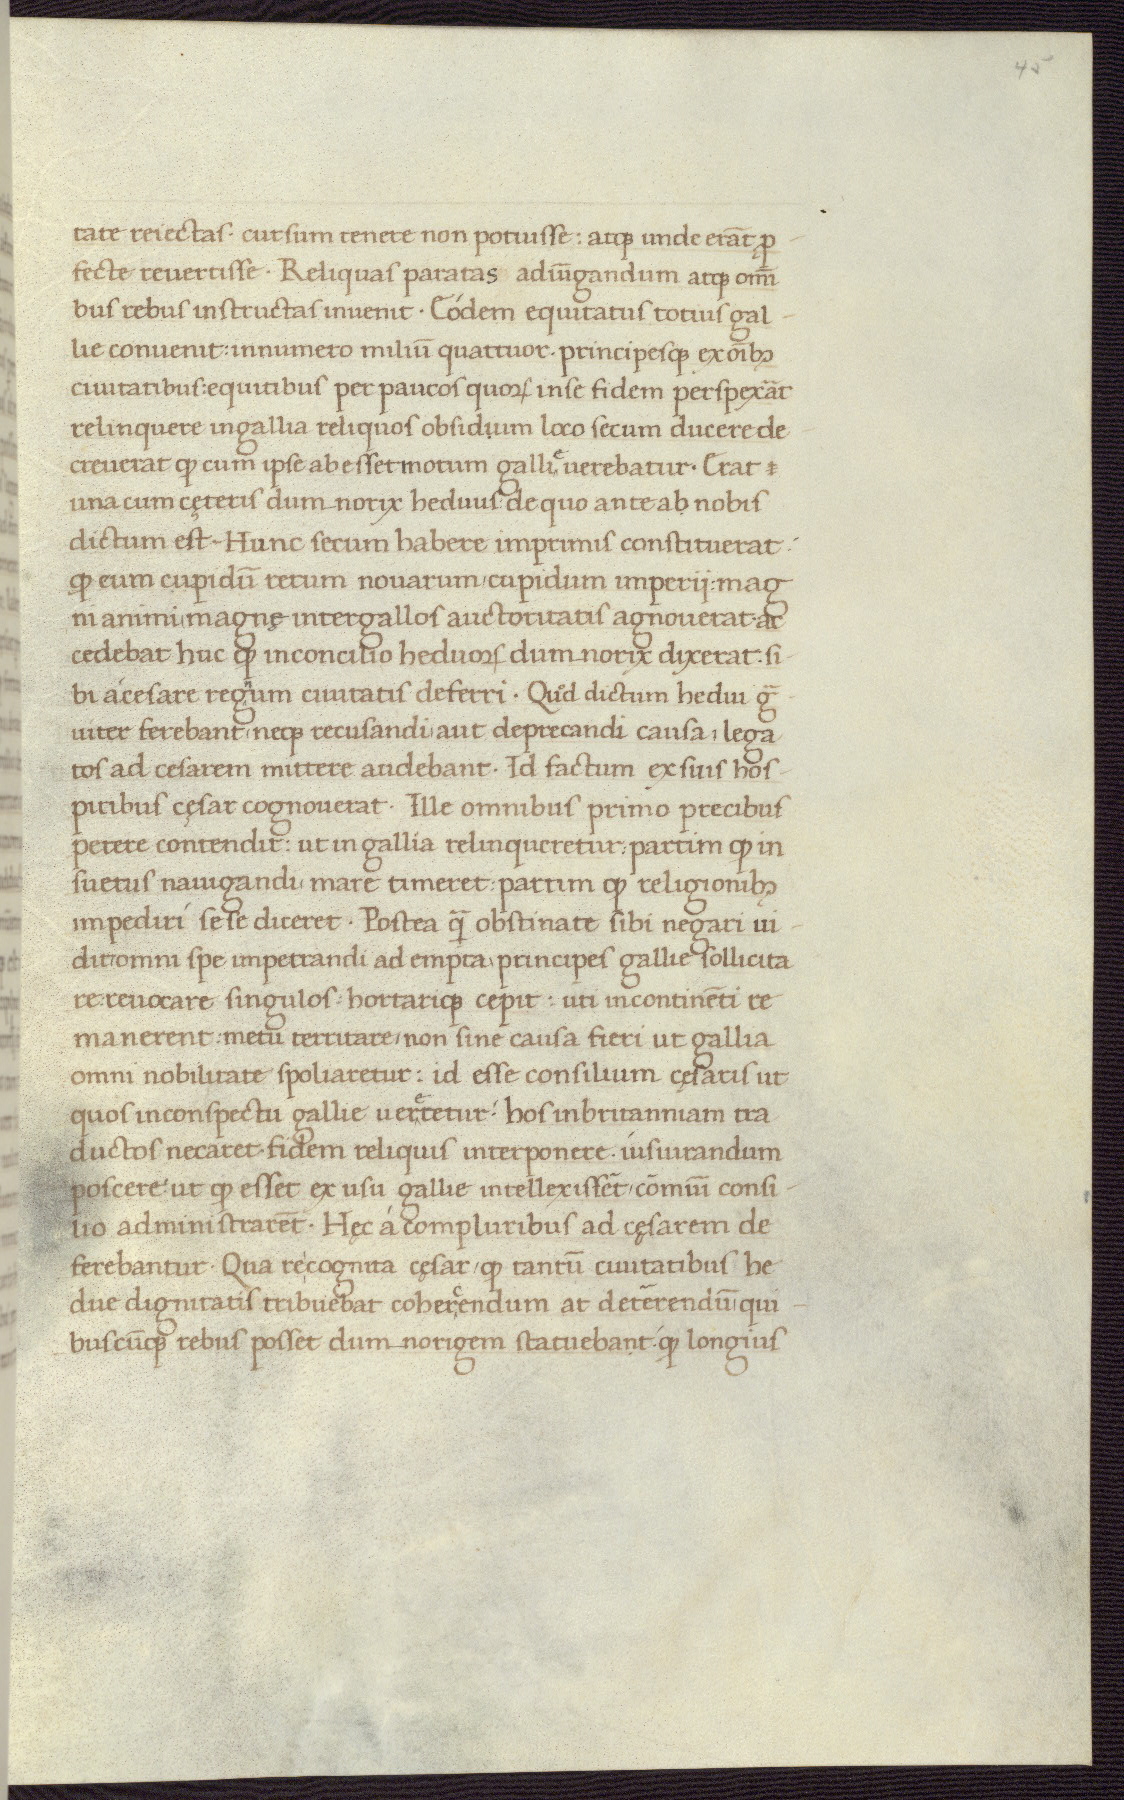 45
tate reiectas· cursum tenere non potuisse: atqꝫ unde erāt ꝓ-
fecte revertisse· Reliquas paratas adnūgandum atqꝫ omī
bus rebus instructas invenit· Eódem equitatus totius gal-
lie convenit: innumero miliū quattuor· principesqꝫ ex oībꝫ
civitatibus: equitibus per paucos quoꝝ inse fidem perspexāt
relinquere ingallia reliquos obsidum loco secum ducere de
creverat qꝫ cum ipse abesset motum gallię verebatur· Erat
una cum cęteris dum norix heduus de quo ante ab nobis
dictum est· Hunc secum habere imprimis constituerat·
qꝫ eum cupidū rerum novarum, cupidum imperij: mag
ni animi, magnę intergallos auctoritatis agnoverat· ac
cedebat huc qꝫ inconcilio heduoꝝ dum norix dixerat: si-
bi ácesare regnum civitatis deferri· Quod dictum hedui gā-
viter ferebant, neqꝫ recusandi, aut deprecandi causa, lega
tos ad cesarem mittere audebant· Id factum ex suis hos-
pitibus cęsar cognoverat· Ille omnibus primo precibus
petere contendit: ut in gallia relinqueretur: partim qꝫ in
suetus navigandi, mare timeret: partim qꝫ religionibꝫ
impediri sese diceret· Postea q̄ obstinate sibi negari vi-
dit, omni spe impetrandi ad empta, principes gallie sollicita
re: revocare singulos: hortariqꝫ cepit: uti incontinēti re
manerent: metu territare, non sine causa fieri ut gallia
omni nobilitate spoliaretur: id esse consilium cęsaris ut
quos inconspectu gallie vereretur: hos inbritanniam tra
ductos necaret· fidem reliquis interponere· iúsiurandum
poscere: ut qꝫ esset ex usu gallie intellexissēt, cōmūi consi-
lio administrarēt· Hęc á compluribus ad cęsarem de
ferebantur· Qua re cognita cęsar, qꝫ tantū civitatibus he
due dignitatis tribuebat cohercendum at deterrendū, qui-
buscūqꝫ rebus posset dum norigem statuebant· qꝫ longius